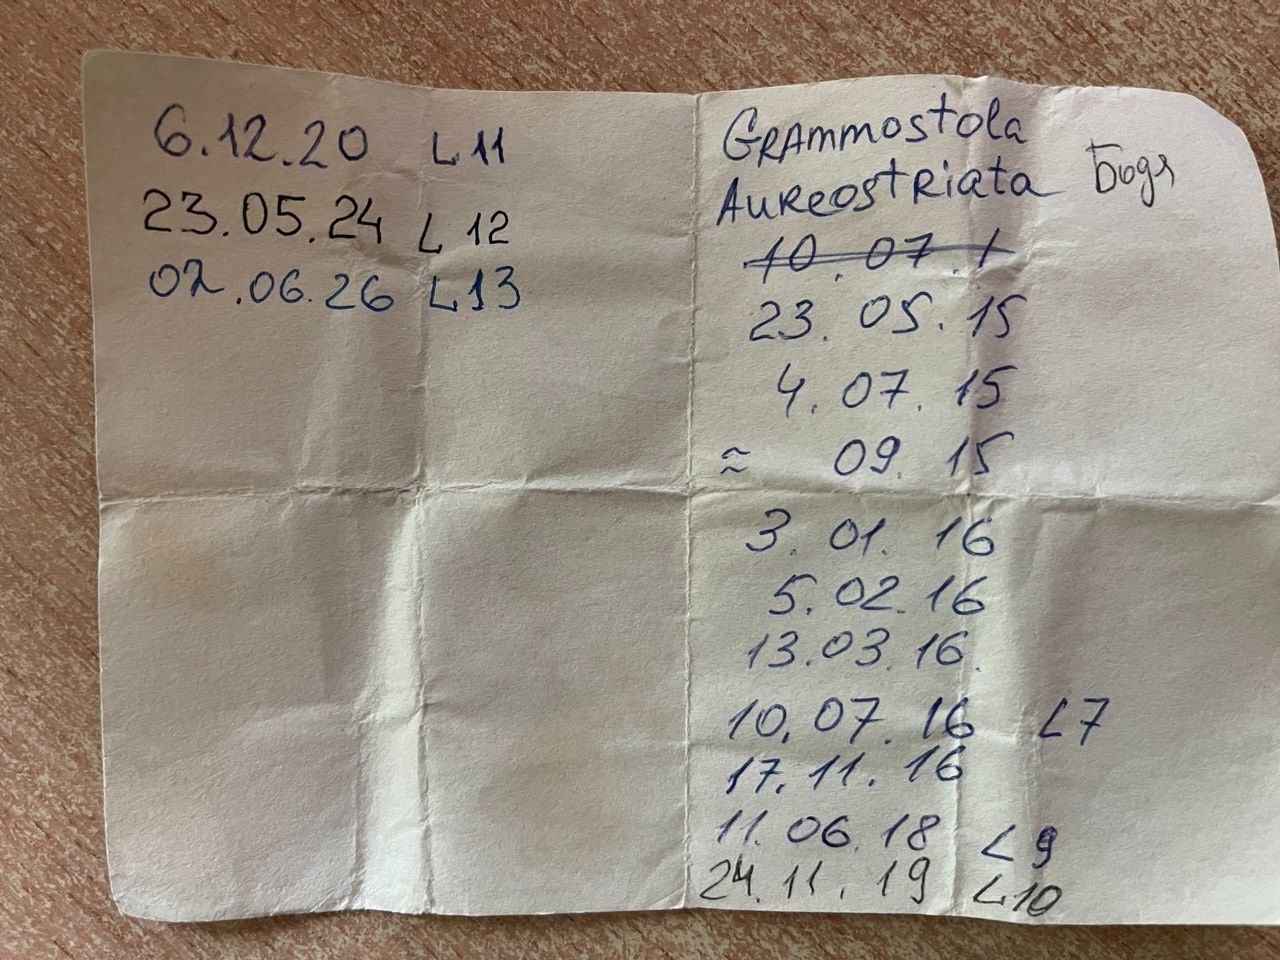 6.12.20 L11
23.05.24 L 12
02.06.26 L13
Grammostola
Aureostriata Бодя
10.07.1
23.05.15
4.07.15
≈ 09.15
3.01.16
5.02.16
13.03.16.
10.07.16 L7
17.11.16
11.06.18 L9
24.11.19 L10